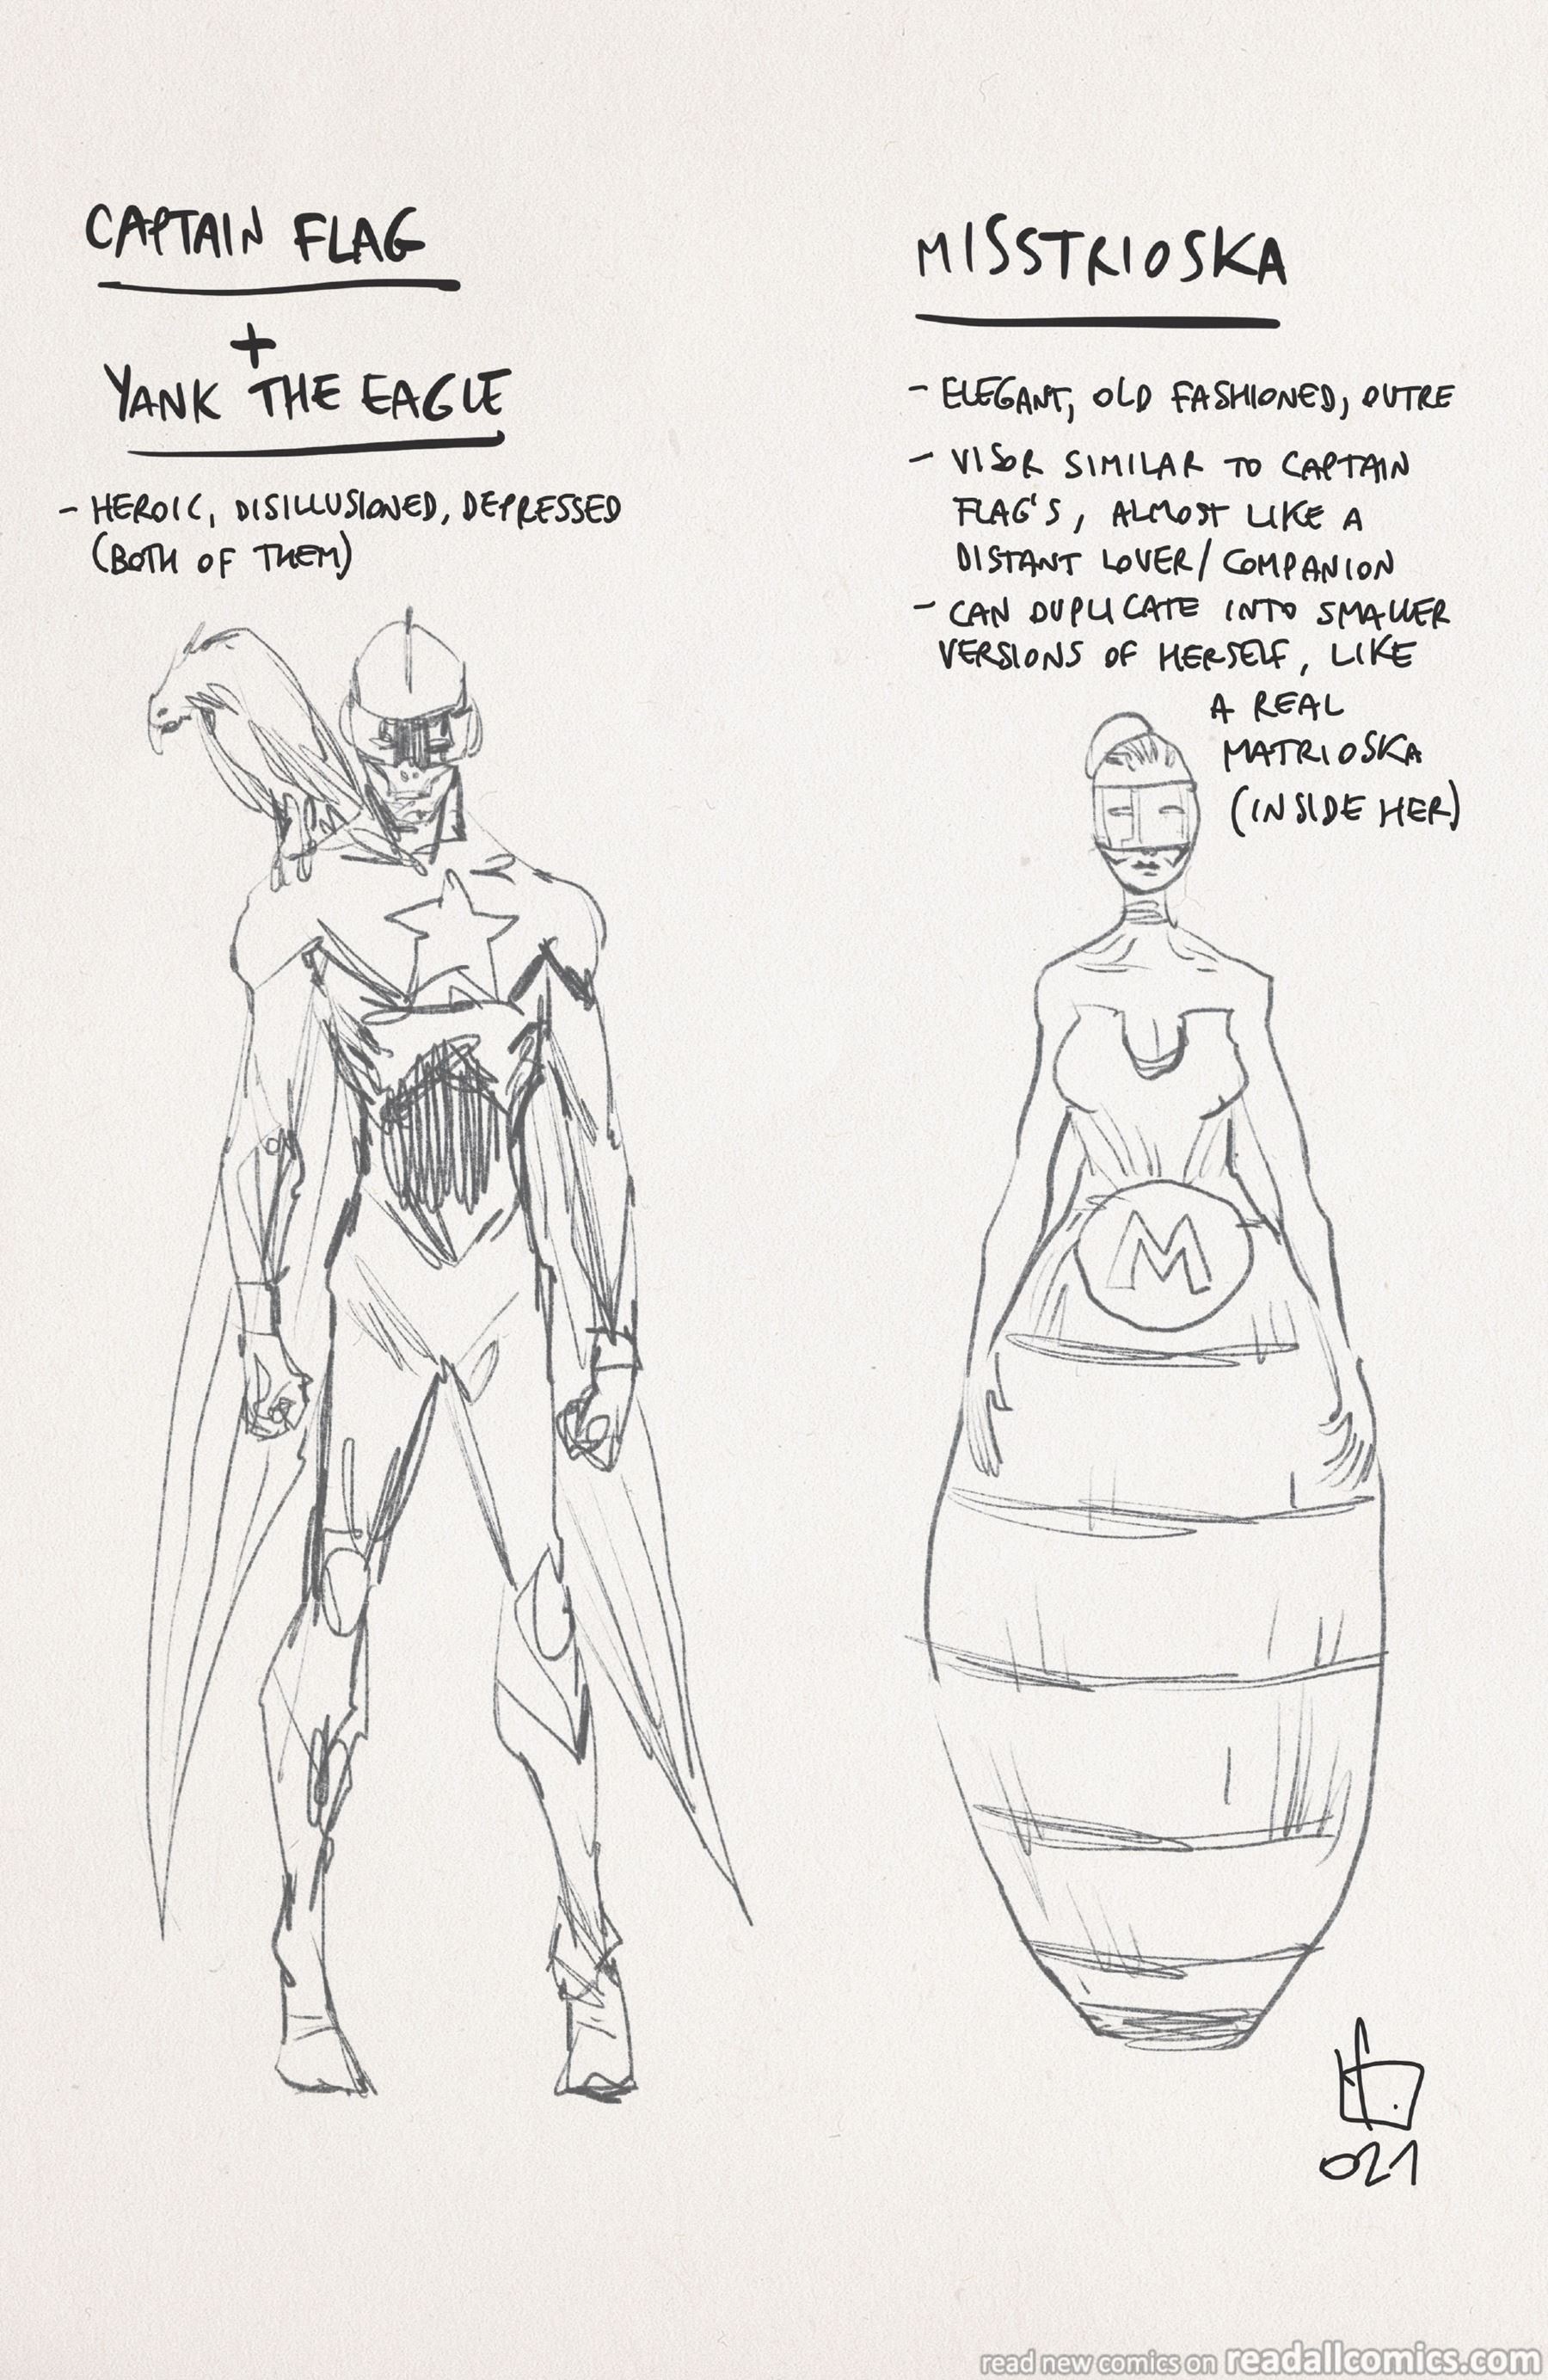 CAPTAIN FLAG
+
YANK THE EAGLE
- HEROIC, DISILLUSIONED, DEPRESSED
(BOTH OF THEM)
MISSTRIOSKA
- ELEGANT, OLD FASHIONED, OUTRE
- VISOR SIMILAR TO CAPTAIN
FLAG'S, ALMOST LIKE A
DISTANT LOVER/COMPANION
- CAN DUPLICATE INTO SMALLER
VERSIONS OF HERSELF, LIKE
A REAL
MATRIOSKA
(INSIDE HER)
M
021
read new comics on readallcomics.com